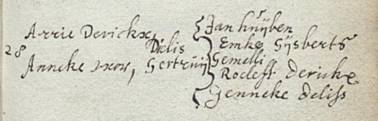 Arrie Derickx, Jan huijben
Delis Emke Gijsberts
28 Anneke vrow, Gertruij Gemelli
Roeleff Derickx
Jenneke Deliss